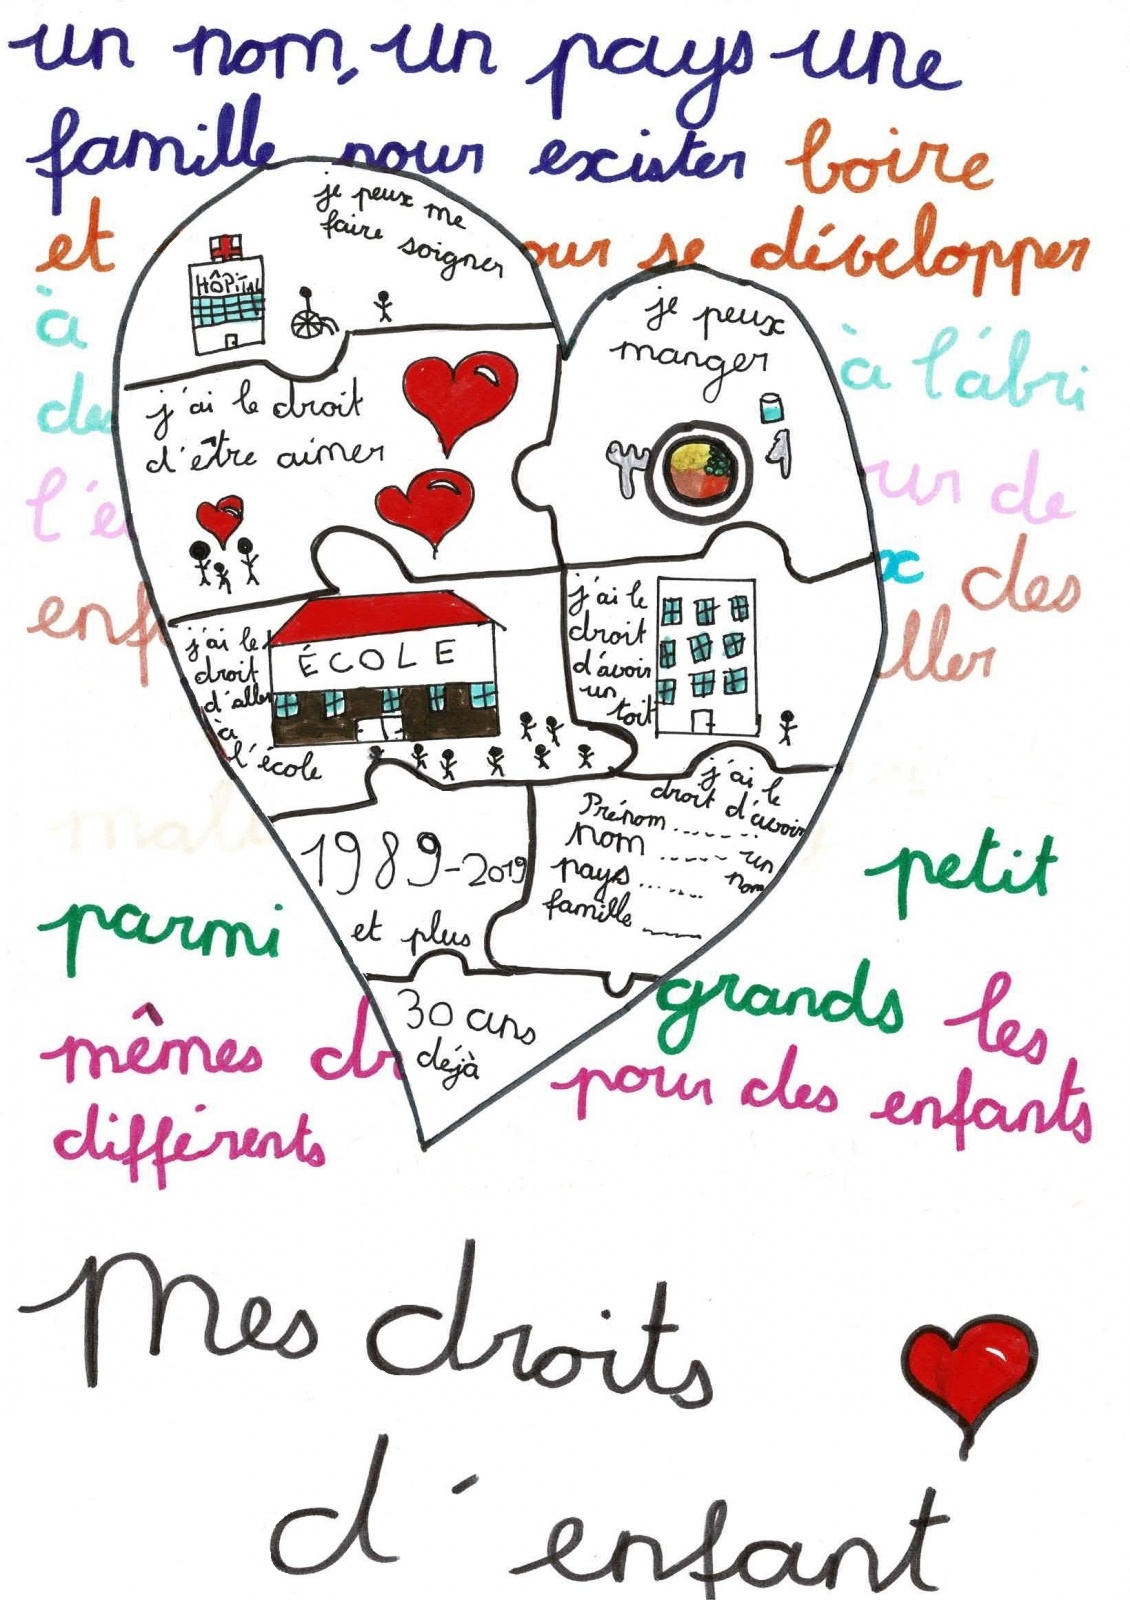 un nom, un pays une
famille pour exister boire
et our se développer
à à l'âbri
de
l'é ur de
enf x des
ller
mal
petit
parmi
grands les
mêmes dr pour des enfants
différents
je peux me
faire soigner
HÔPITAL
je peux
manger
j'ai le droit
d'être aimer
j'ai le
droit
d'aller
à
l'école
ÉCOLE
j'ai le
droit
d'avoir
un
toit
1989-2019
et plus
j'ai le
droit d'avoir
un
nom
Prénom
nom
pays
famille
30 ans
déjà
Mes droits
d'enfant